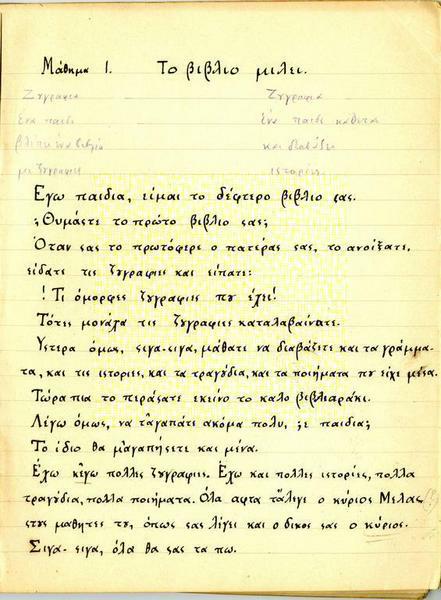 Μάθημα 1. Το βιβλιο μιλει.
Ζυγραφια Ζυγραφια
ένα παιδι ένα παιδι καθεται
βλέπει ένα βιβλίο και διαβάζει
με ζυγραφιες ιστορίες
Εγω παιδια, είμαι το δέφτερο βιβλιο σας.
;Θυμάστε το πρώτο βιβλιο σας;
Όταν σας το πρωτόφερε ο πατέρας σας, το ανοίξατε,
είδατε τις ζυγραφιες και είπατε:
! Τι όμορφες ζυγραφιες πυ έχει!
Τότες μονάχα τις ζυγραφιες καταλαβαίνατε.
Υστερα όμως, σιγα-σιγα, μάθατε να διαβάζετε και τα γράμμα-
τα, και τις ιστοριες, και τα τραγύδια, και τα ποιήματα πυ είχε μέσα.
Τώρα πια το περάσατε εκείνο το καλο βιβλιαράκι.
Λέγω όμως, να τ' αγαπάτε ακόμα πολυ, ;ε παιδια;
Το ίδιο θα μ' αγαπήσετε και μένα.
Έχω κ' εγω πολλες ζυγραφιες. Έχω και πολλες ιστορίες, πολλα
τραγύδια, πολλα ποιήματα. Όλα αφτα τα λέγει ο κύριος Μελας
στυς μαθητες τυ, όπως σας λέγει και ο δικος σας ο κύριος.
Σιγα-σιγα, όλα θα σας τα πω.